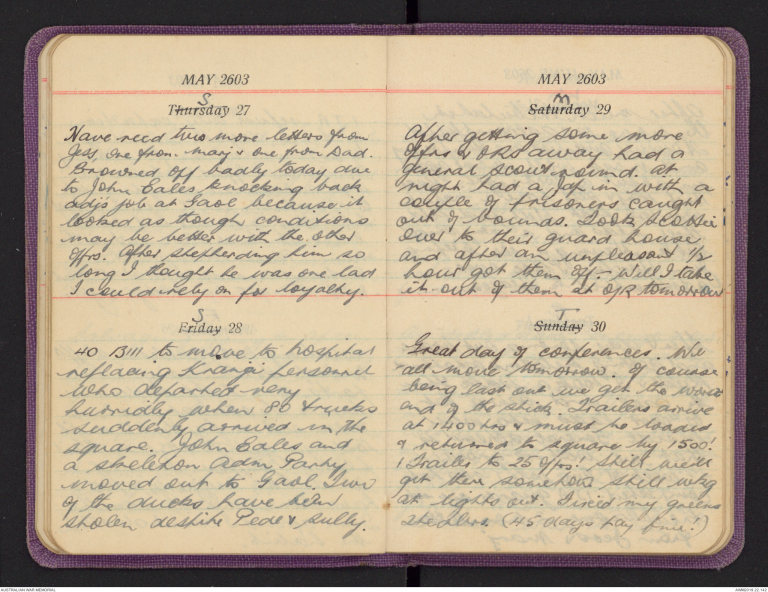 MAY 2603
S
Thursday 27
Have recd two more letters from
Jess, one from Marj & one from Dad.
Browned off badly today due
to John Eales knocking back
adjs job at Gaol because it
looked as though conditions
may be better with the other
offrs. After shepherding him so
long I thought he was one lad
I could rely on for loyalty.
S
Friday 28
40 B111 to move to hospital
replacing Kranji personnel
who departed very
hurriedly when 80 trucks
suddenly arrived in the
square. John Eales and
a skeleton Adm Party
moved out to Gaol. Two
of the ducks have been
stolen despite Pede & Sully.
MAY 2603
M
Saturday 29
After getting some more
Offrs & ORs away had a
general scout round. At
night had a job in with a
couple of prisoners caught
out of bounds. Took Scottie
over to their guard house
and after an unpleasant 1/2
hour got them off. - Will I take
it out of them at O/R tomorrow
T
Sunday 30
Great day of conferences. We
all move tomorrow. Of course
being last out we get the worst
end of the stick. Trailers arrive
at 1400 hrs & must be loaded
& returned to square by 1500!
1 Trailer to 25 Offrs! Still we'll
get there somehow. Still
at lights out. Fined my greens
stealers. (45 days pay fine!)
AUSTRALIAN WAR MEMORIAL
AWM2019.22.142